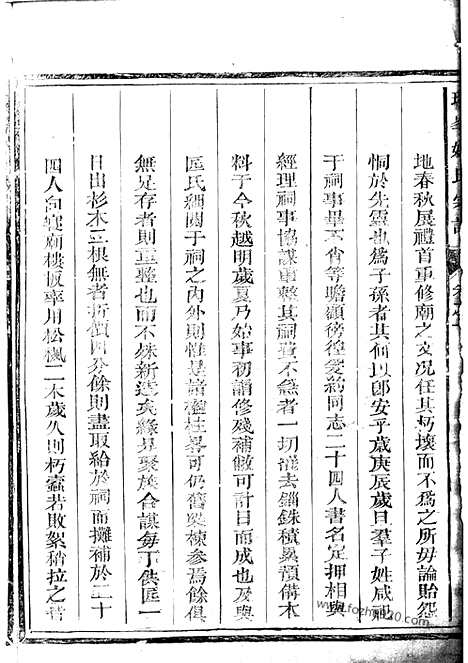 地春秋展禮首重修廟之文况任其朽壞而不爲之所毋論貽怨
恫於先靈也爲子孫者其何以卽安乎歲庚辰歲日羣子姓咸祀
于祠事畢不肖等瞻顧徬徨爰約同志二十四人書名定押相與
經理祠事協謀重整其祠費不急者一切權去錙銖積累預備木
料于今秋越明歲夏乃始事初謂修殘補敝可計日而成也及與
匠氏細閱于祠之内外則惟是諸楹柱畧可仍舊契棟參焉餘俱
無足存者則重整也而不殊新造矣緣是聚族合謀每丁供匠一
日出杉木三根無者折價四分餘則盡取給於祠而攤補於二十
四人向寢廟樓板率用松楓二木歲久則朽蠹若敗絮稍拉之皆
氏宗譜
www.fozhu920.com